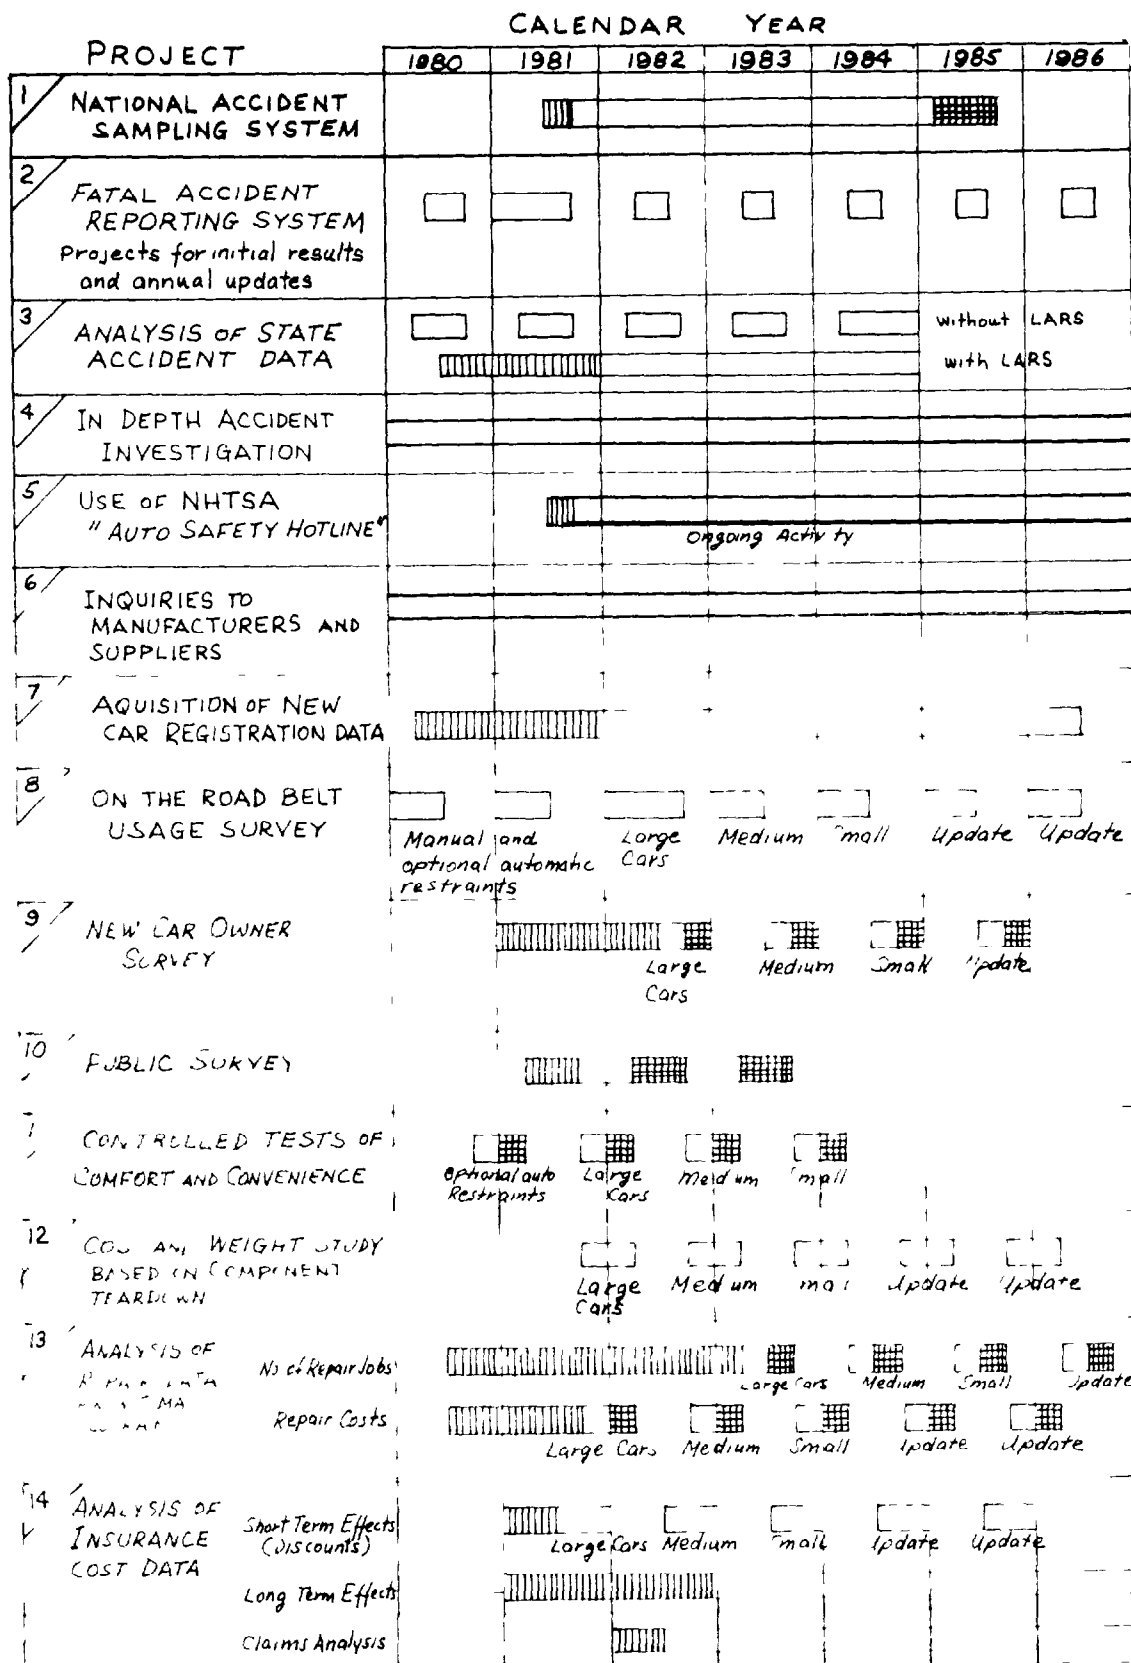 CALENDAR YEAR
PROJECT
1980 1981 1982 1983 1984 1985 1986
1 NATIONAL ACCIDENT
SAMPLING SYSTEM
2 FATAL ACCIDENT
REPORTING SYSTEM
Projects for initial results
and annual updates
3 ANALYSIS OF STATE
ACCIDENT DATA
without LARS
with LARS
4 IN DEPTH ACCIDENT
INVESTIGATION
5 USE OF NHTSA
"AUTO SAFETY HOTLINE"
Ongoing Activity
6 INQUIRIES TO
MANUFACTURERS AND
SUPPLIERS
7 AQUISITION OF NEW
CAR REGISTRATION DATA
8 ON THE ROAD BELT
USAGE SURVEY
Manual and
optional automatic
restraints
Large
Cars
Medium
Small
Update
Update
9 NEW CAR OWNER
SURVEY
Large
Cars
Medium
Small
Update
10 PUBLIC SURVEY
CONTROLLED TESTS OF
COMFORT AND CONVENIENCE
Optional auto
Restraints
Large
Cars
Medium
Small
12 WEIGHT STUDY
BASED ON COMPONENT
TEARDOWN
Large
Cars
Medium
Small
Update
Update
13 ANALYSIS OF
No of Repair Jobs
Large Cars Medium Small Update
Repair Costs
Large Cars Medium Small Update Update
14 ANALYSIS OF
INSURANCE
COST DATA
Short Term Effects
(Discounts)
Large Cars Medium Small Update Update
Long Term Effects
Claims Analysis